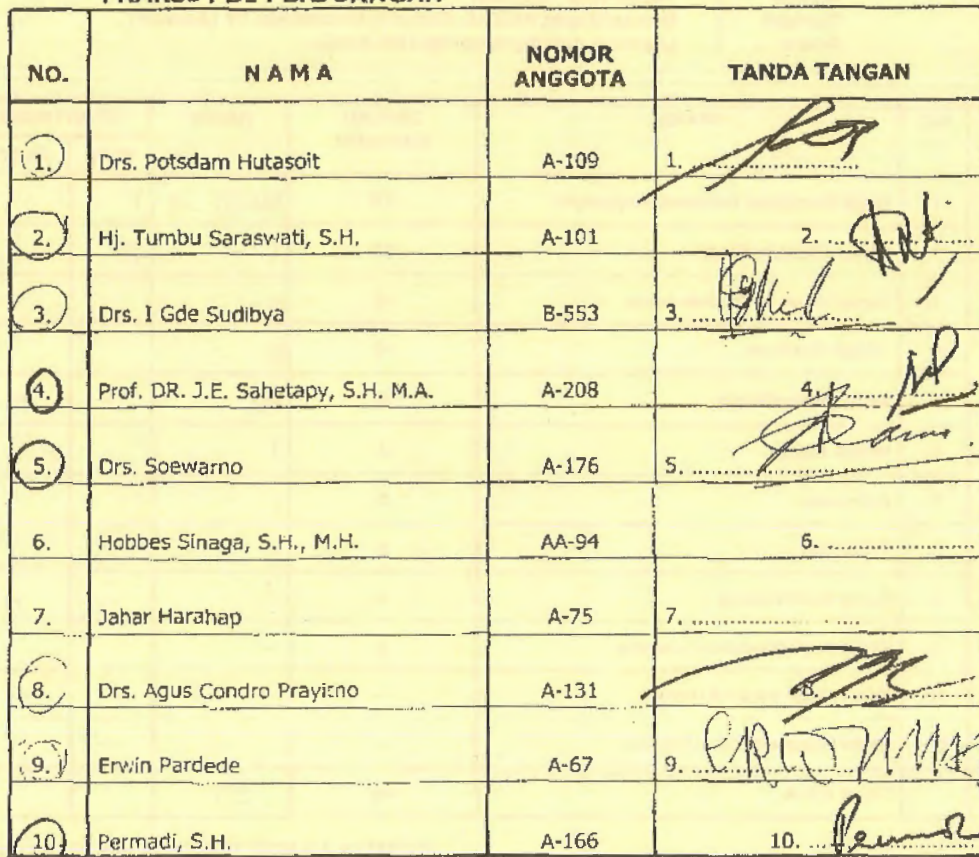 NO.
N A M A
NOMOR
ANGGOTA
TANDA TANGAN
1. Drs. Potsdam Hutasoit A-109 1. ....................
2. Hj. Tumbu Saraswati, S.H. A-101 2. ....................
3. Drs. I Gde Sudibya B-553 3. ....................
4. Prof. DR. J.E. Sahetapy, S.H. M.A. A-208 4. ....................
5. Drs. Soewarno A-176 5. ....................
6. Hobbes Sinaga, S.H., M.H. AA-94 6. ....................
7. Jahar Harahap A-75 7. ....................
8. Drs. Agus Condro Prayitno A-131 8. ....................
9. Erwin Pardede A-67 9. ....................
10. Permadi, S.H. A-166 10. ....................